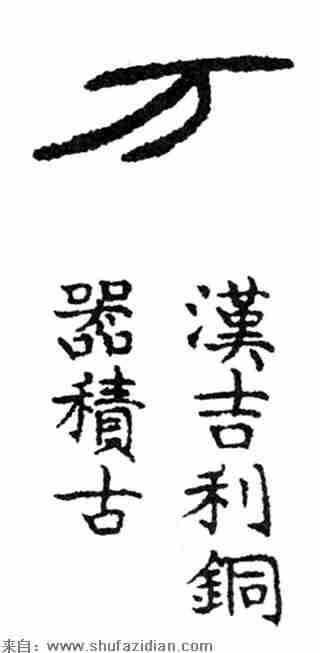 万
漢吉利銅
器積古
来自：www.shufazidian.com